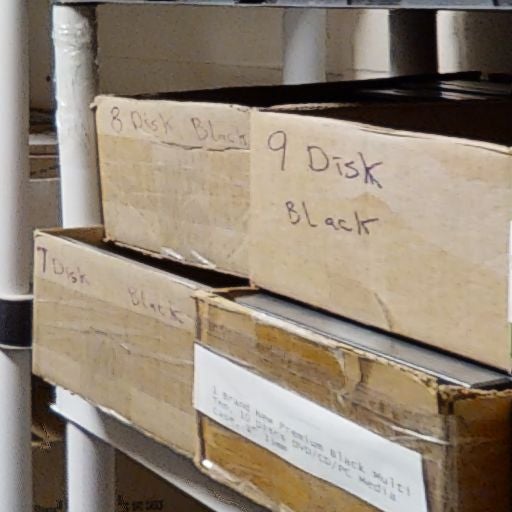 8 Disk Black
9 Disk
Black
7 Disk Black
1 Brand New Premium Black Multi
Ten, 10 Discs DVD/CD/PC Media
Case,